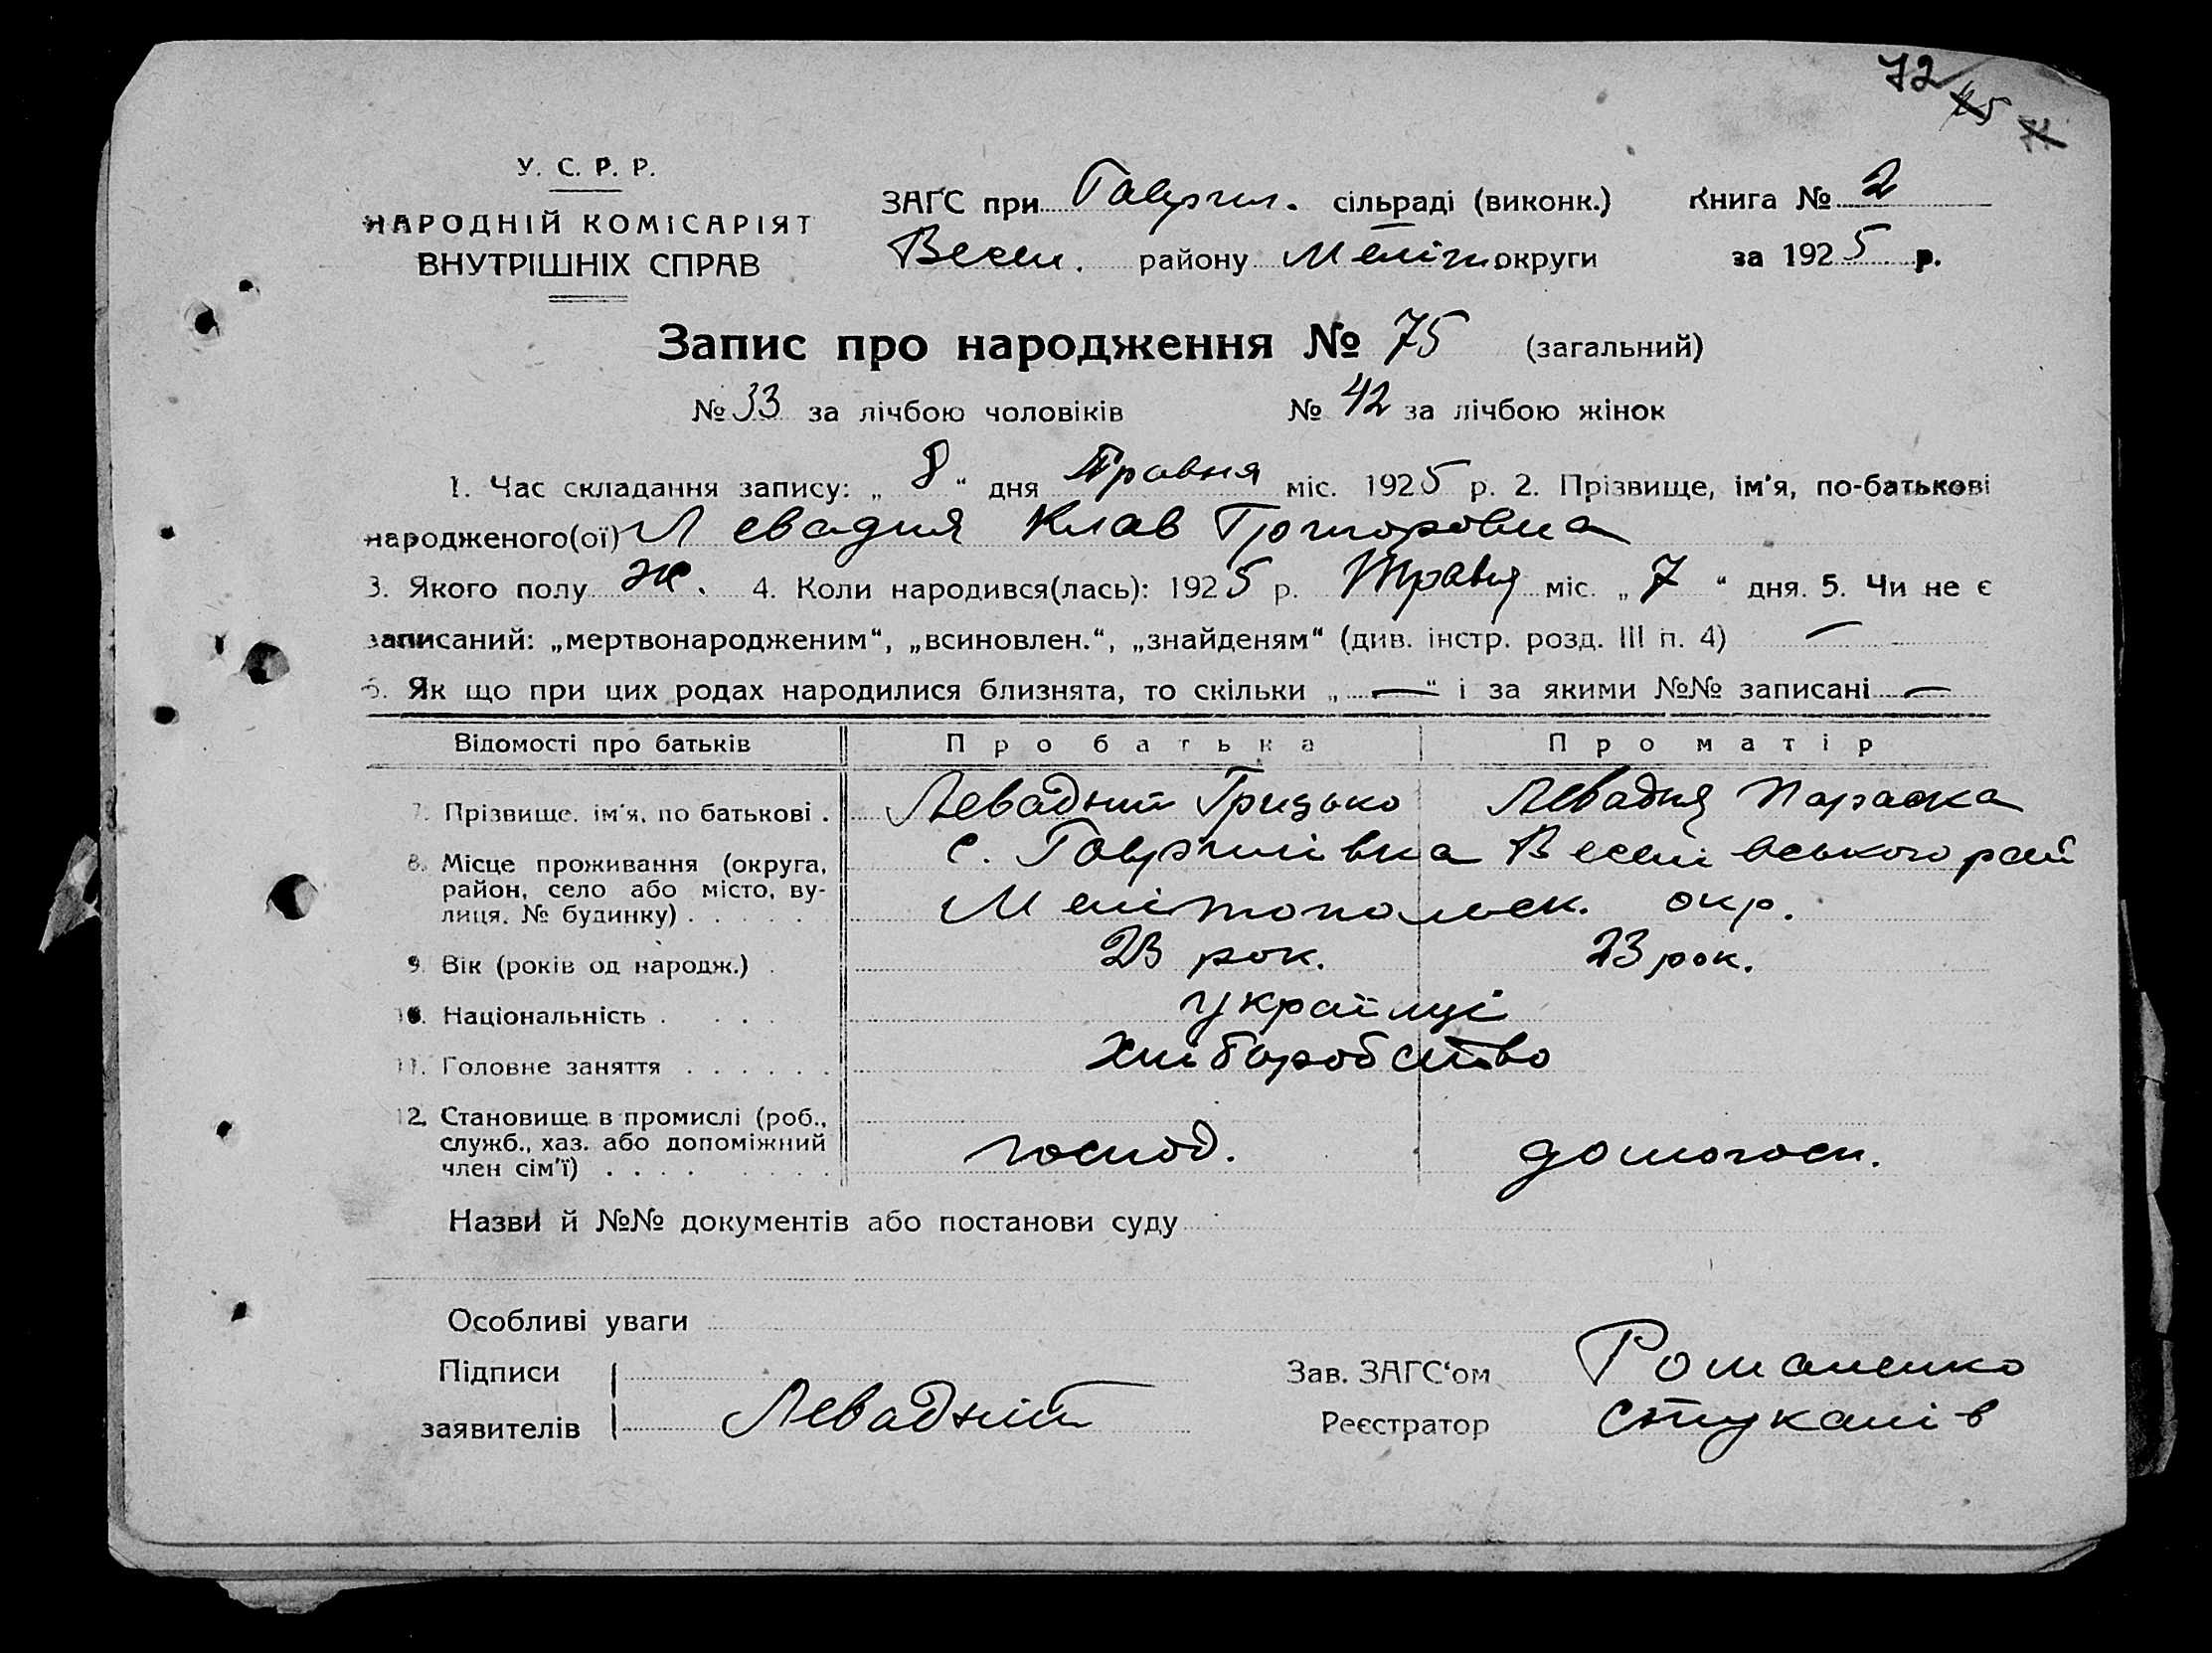 72
75
71
У. С. Р. Р.
НАРОДНІЙ КОМІСАРІЯТ
ВНУТРІШНІХ СПРАВ
ЗАГС при Гаврил. сільраді (виконк.) Книга № 2
Весел. району Меліт округи за 1925 р.
Запис про народження № 75 (загальний)
№ 33 за лічбою чоловіків № 42 за лічбою жінок
1. Час складання запису: „ 8 “ дня Травня міс. 1925 р. 2. Прізвище, ім'я, по-батькові
народженого(ої) Левадня Клав Григоровна
3. Якого полу ж. 4. Коли народився(лась): 1925 р. Травня міс. „ 7 “ дня. 5. Чи не є
записаний: „мертвонародженим“, „всиновлен.“, „знайденям“ (див. інстр. розд. III п. 4) —
6. Як що при цих родах народилися близнята, то скільки „ — “ і за якими №№ записані —
Відомості про батьків Про батька Про матір
7. Прізвище, ім'я, по батькові . Левадний Грицько Левадня Параска
8. Місце проживання (округа, с. Гаврилівка Веселівського рай
район, село або місто, ву-
лиця, № будинку) . . . . . Мелітопольск. окр.
9. Вік (років од народж.) . 23 рок. 23 рок.
10. Національність . . . . українці
11. Головне заняття . . . . . . хліборобство
12. Становище в промислі (роб.,
служб., хаз. або допоміжний господ. домогосп.
член сім'ї) . . . . . . . .
Назви й №№ документів або постанови суду
Особливі уваги
Підписи Зав. ЗАГС'ом Романенко
заявителів Левадний Реєстратор Стукалів